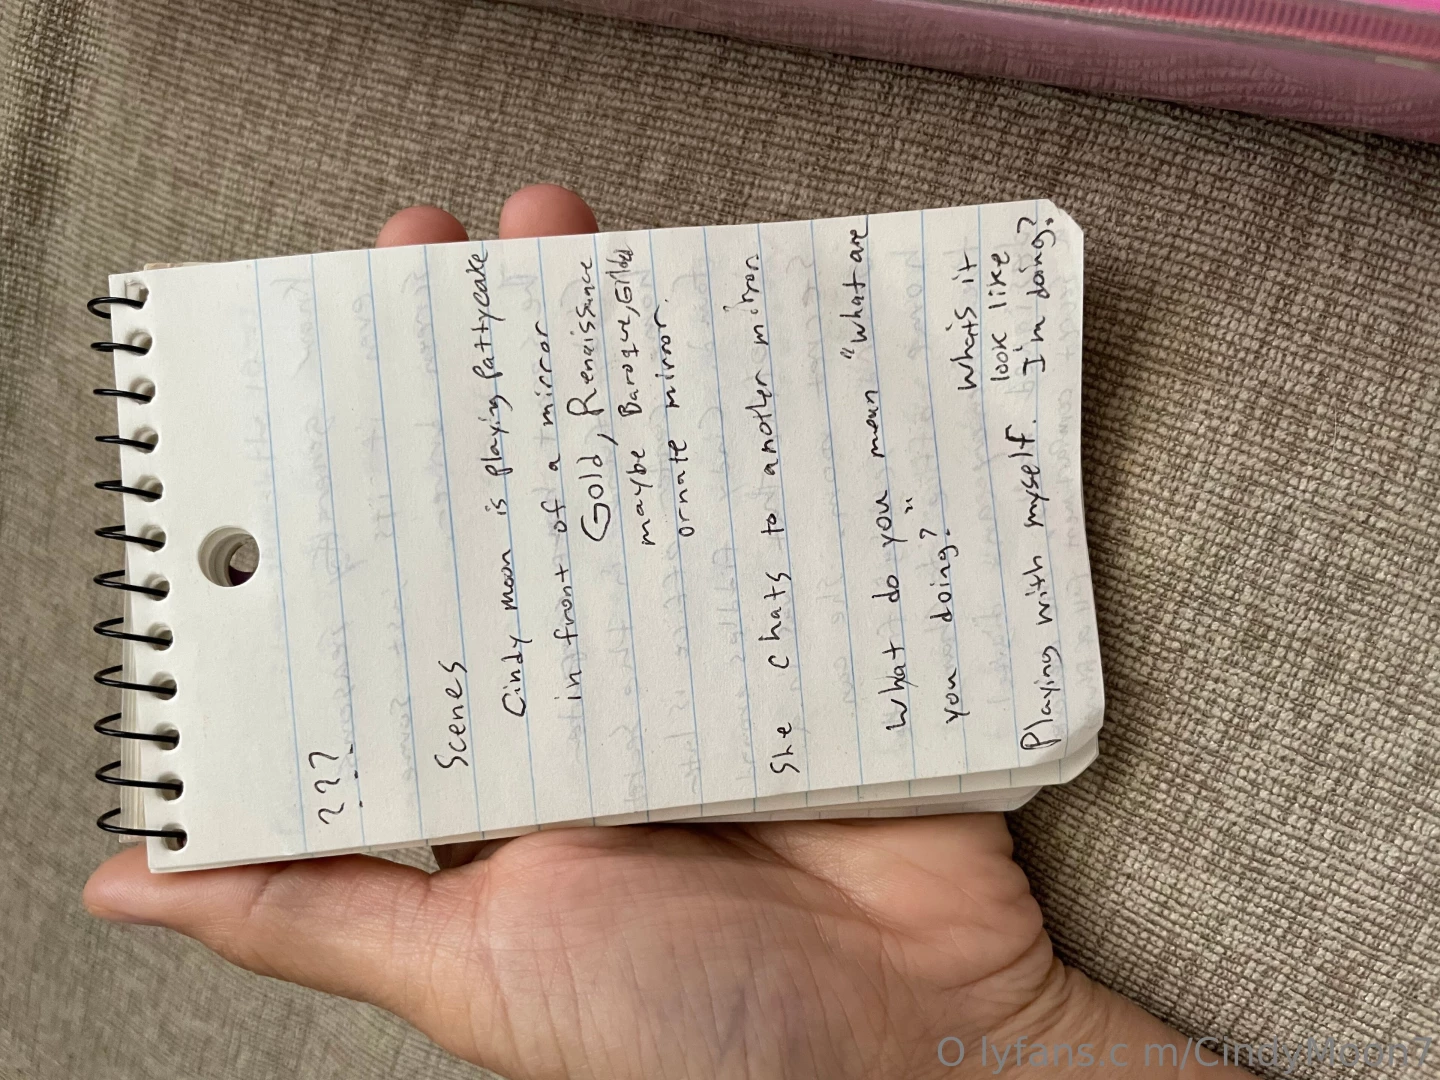 ???
Scenes
Cindy moon is playing Pattycake
in front of a mirror
Gold, Renaissance
maybe Baroque, Gilded
ornate mirror.
She chats to another mirror
What do you mean "What are
you doing?"
Whats it
look like
Playing with myself. I'm doing?
O lyfans.c m/CindyMoon7